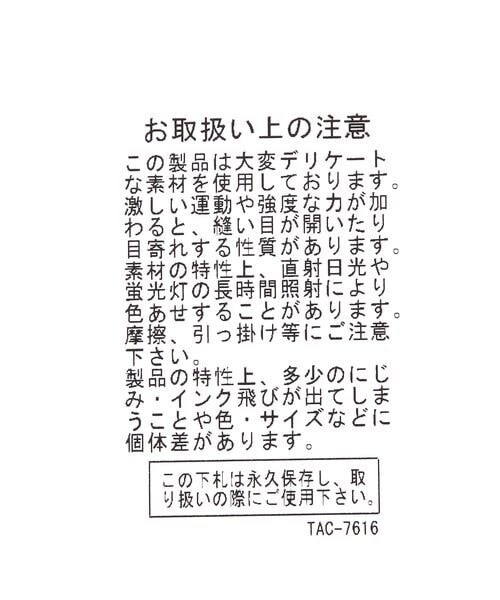 お取扱い上の注意
この製品は大変デリケート
な素材を使用しております。
激しい運動や強度な力が加
わると、縫い目が開いたり
目寄れする性質があります。
素材の特性上、直射日光や
蛍光灯の長時間照射により
色あせすることがあります。
摩擦、引っ掛け等にご注意
下さい。
製品の特性上、多少のにじ
み・インク飛びが出てしま
うことや色・サイズなどに
個体差があります。
この下札は永久保存し、取
り扱いの際にご使用下さい。
TAC-7616